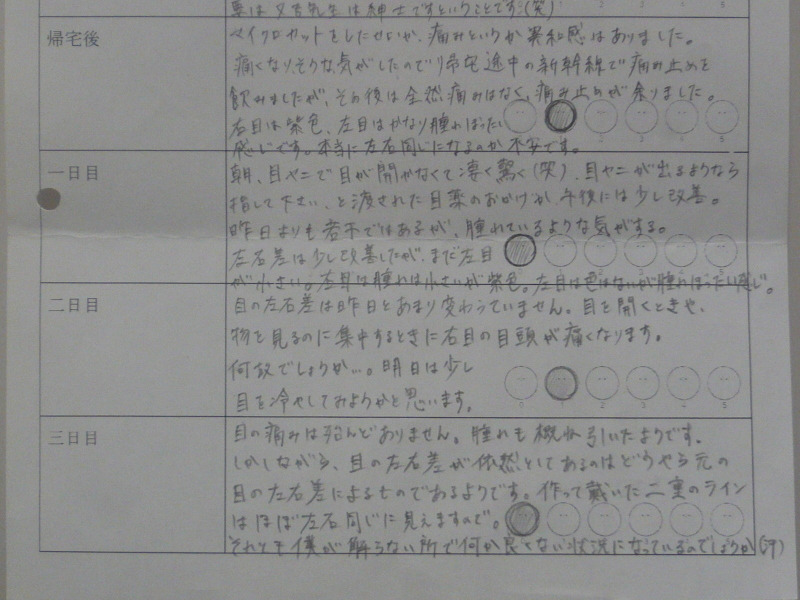 要は夕方先生は紳士ですということです(笑)
帰宅後
ベイクロカットをしたせいか、痛みというか異和感はありました。
痛くなりそうな気がしたので帰宅途中の新幹線で痛み止めを
飲みましたが、その後は全然痛みはなく、痛み止めが余りました。
右目は紫色、左目はかなり腫れぼったい
感じです。本当に左右同じになるのか不安です。
一日目
朝、目ヤニで目が開かなくて凄く驚く(笑)、目ヤニが出るようなら
指して下さい、と渡された目薬のおかげか、午後には少し改善。
昨日よりも若干ではあるが、腫れているような気がする。
左右差は少し改善したが、まだ左目
が小さい。右目は腫れは小さいが紫色。左目は色はないが腫れぼったい感じ。
二日目
目の左右差は昨日とあまり変わっていません。目を開くときや、
物を見るのに集中するときに右目の目頭が痛くなります。
何故でしょうか…。明日は少し
目を冷やしてみようかと思います。
三日目
目の痛みは殆んどありません。腫れも概ね引いたようです。
しかしながら、目の左右差が依然としてあるのはどうやら元の
目の左右差によるものであるようです。作って戴いた二重のライン
はほぼ左右同じに見えますので。
それとも僕が解らない所で何か良くない状況になっているのでしょうか(汗)